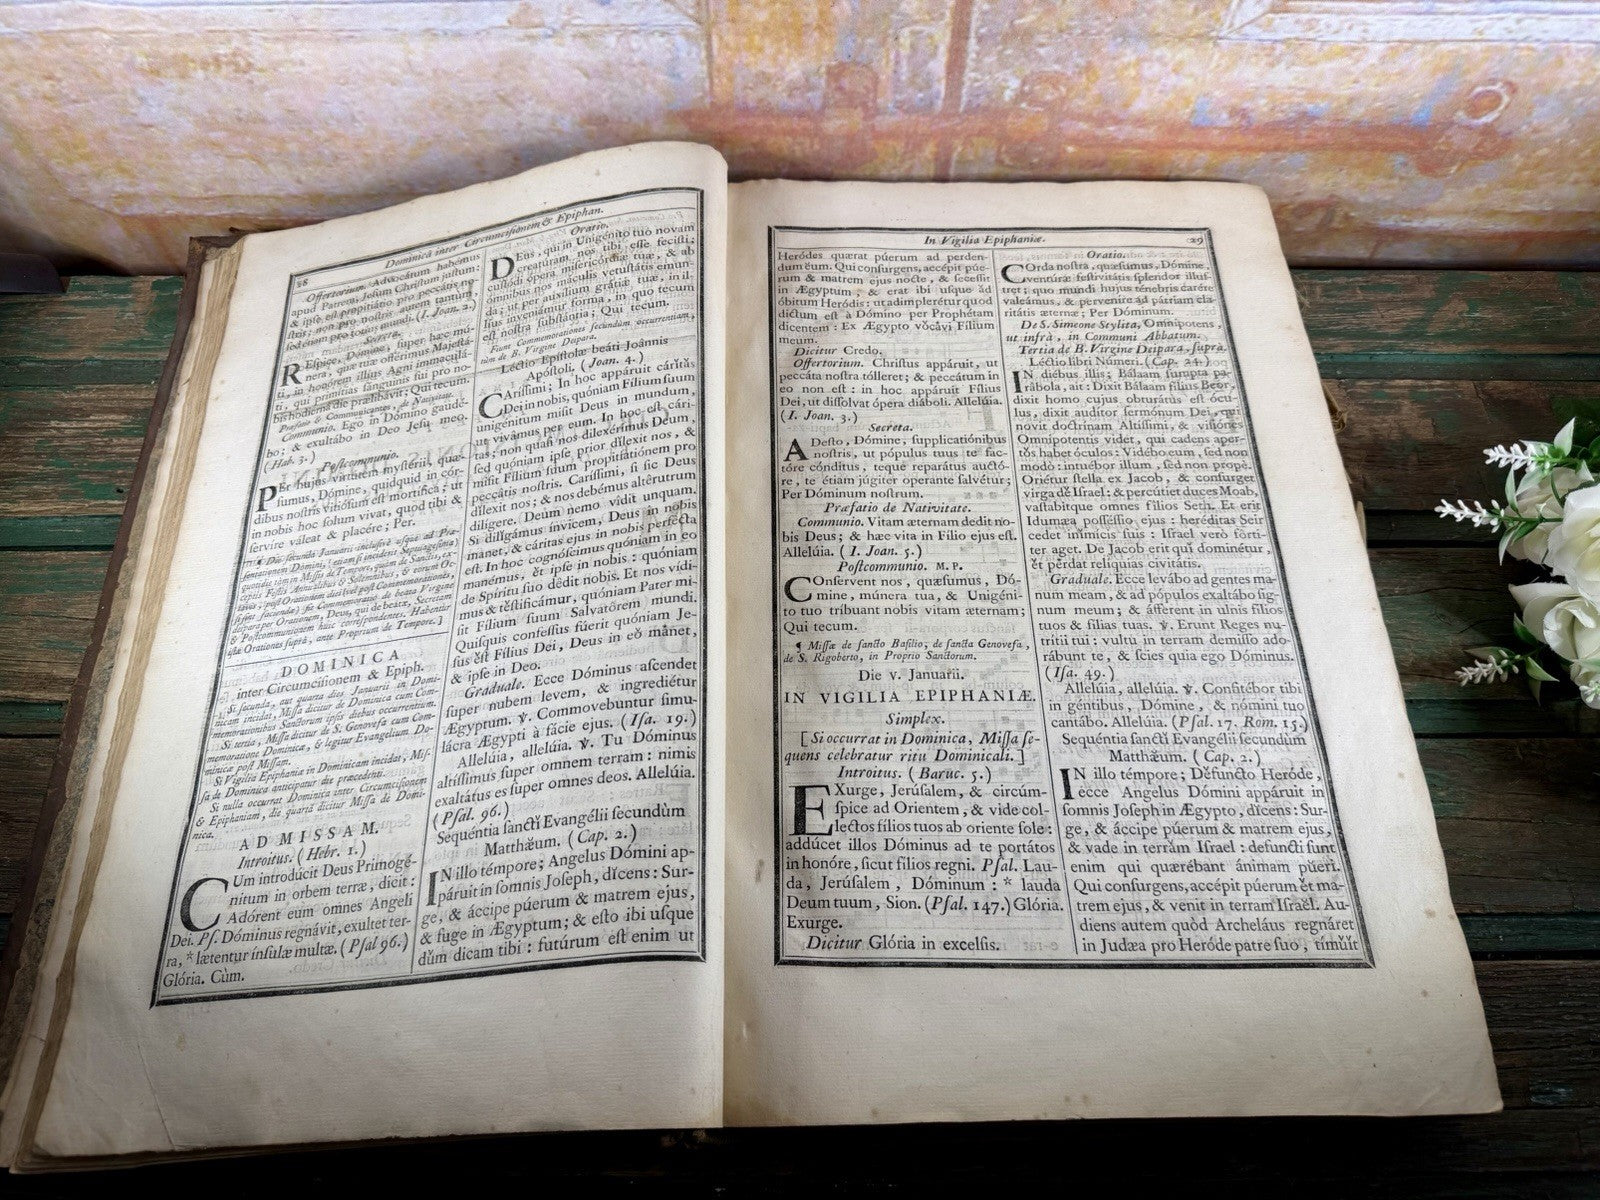 28
Dominicâ inter Circumcisionem & Epiphan.
Offertorium. Advocátum habémus
apud Patrem, Jesum Christum justum:
& ipse est propitiátio pro peccátis no-
stris; non pro nostris autem tantùm,
sed etiam pro totíus mundi. (I. Joan. 2.)
Secreta.
REspice, Dómine, super hæc mú-
nera, quæ offérimus Majestá-
ti, qui primítias sanguinis sui pro no-
bis hodierna die prælibávit; Qui tecum.
Præfatio & Communicantes, de Nativitate.
Communio. Ego in Dómino gaudé-
bo; & exultábo in Deo Jesu meo.
(Hab. 3.)
Postcommunio.
PEr hujus virtútem mystérii, quæ-
sumus, Dómine, quidquid in cór-
dibus nostris vitiósum est mortífica; ut
in nobis hoc solum vivat, quod tibi &
servíre váleat & placére; Per.
DOMINICA
inter Circumcisionem & Epiph.
Si secunda, aut quarta dies Januarii in Domi-
nicam incidat, Missa dicitur de Dominica cum Com-
memorationibus Sanctorum ipsis diebus occurrentium.
Si tertia, Missa dicitur de S. Genovefa cum Com-
memoratione Dominicæ, & legitur Evangelium Do-
minicæ post Missam.
Si Vigilia Epiphaniæ in Dominicam incidat, Mis-
sa de Dominica anticipatur die præcedenti.
Si nulla occurrat Dominica inter Circumcisionem
& Epiphaniam, die quartâ dicitur Missa de Domi-
nica.
AD MISSAM.
Introitus. (Hebr. 1.)
CUm introdúcit Deus Primogé-
nitum in orbem terræ, dicit:
Adórent eum omnes Angeli
Dei. Ps. Dóminus regnávit, exultet ter-
ra, * lætentur ínsulæ multæ. (Psal 96.)
Glória. Cùm.
Oratio.
DEus, qui in Unigénito tuo novam
creatúram nos tibi esse fecísti;
custódi ópera misericórdiæ tuæ, & ab
ómnibus nos máculis vetustátis emun-
da; ut per auxílium grátiæ tuæ, in il-
líus inveniámur forma, in quo tecum
est nostra substántia; Qui tecum.
Fiunt Commemorationes secundùm occurrentiam,
tùm de B. Virgine Deipara.
Léctio Epístolæ beáti Joánnis
Apóstoli. (Joan. 4.)
CAríssimi; In hoc appáruit cáritas
Dei in nobis, quóniam Fílium suum
unigénitum misit Deus in mundum,
ut vivámus per eum. In hoc est cári-
tas; non quasi nos dilexérimus Deum,
sed quóniam ipse prior diléxit nos, &
misit Fílium suum propitiatiónem pro
peccátis nostris. Caríssimi, si sic Deus
diléxit nos; & nos debémus altérutrum
dilígere. Deum nemo vidit unquam.
Si diligámus ínvicem, Deus in nobis
manet, & cáritas ejus in nobis perfécta
est. In hoc cognóscimus quóniam in eo
manémus, et ipse in nobis: quóniam
de Spíritu suo dedit nobis. Et nos vídi-
mus & testificámur, quóniam Pater mi-
sit Fílium suum Salvatórem mundi.
Quisquis conféssus fúerit quóniam Je-
sus est Fílius Dei, Deus in eo manet,
& ipse in Deo.
Graduale. Ecce Dóminus ascendet
super nubem levem, & ingrediétur
Ægyptum. ℣. Commovebuntur simu-
lácra Ægypti à fácie ejus. (Isa. 19.)
Allelúia, allelúia. ℣. Tu Dóminus
altíssimus super omnem terram: nimis
exaltátus es super omnes deos. Allelúia.
(Psal. 96.)
Sequéntia sancti Evangélii secundùm
Matthæum. (Cap. 2.)
IN illo témpore; Angelus Dómini ap-
páruit in somnis Joseph, dícens: Sur-
ge, & áccipe púerum & matrem ejus,
& fuge in Ægyptum; & esto ibi usque
dùm dicam tibi: futúrum est enim ut
In Vigilia Epiphaniæ.
29
Heródes quærat púerum ad perden-
dum eum. Qui consurgens, accépit púe-
rum & matrem ejus nocte, & secéssit
in Ægyptum; & erat ibi usque ad
óbitum Heródis: ut adimplerétur quod
dictum est à Dómino per Prophétam
dicentem: Ex Ægypto vocávi Fílium
meum.
Dicitur Credo.
Offertorium. Christus appáruit, ut
peccáta nostra tólleret; & peccátum in
eo non est: in hoc appáruit Fílius
Dei, ut dissolvat ópera diáboli. Allelúia.
(I. Joan. 3.)
Secreta.
ADesto, Dómine, supplicatiónibus
nostris, ut pópulus tuus te fac-
tóre cónditus, teque reparátus auctó-
re, te étiam júgiter operante salvétur;
Per Dóminum nostrum.
Præfatio de Nativitate.
Communio. Vitam æternam dedit no-
bis Deus; & hæc vita in Filio ejus est.
Allelúia. (I. Joan. 5.)
Postcommunio. M. P.
COnservent nos, quæsumus, Dó-
mine, múnera tua, & Unigéni-
to tuo tríbuant nobis vitam æternam;
Qui tecum.
¶ Missæ de sancto Basilio, de sancta Genovefa,
de S. Rigoberto, in Proprio Sanctorum.
Die v. Januarii.
IN VIGILIA EPIPHANIÆ.
Simplex.
[Si occurrat in Dominica, Missa se-
quens celebratur ritu Dominicali.]
Introitus. (Baruc. 5.)
EXurge, Jerúsalem, & circúm-
spice ad Orientem, & vide col-
lectos fílios tuos ab oriente sole:
addúcet illos Dóminus ad te portátos
in honóre, sicut fílios regni. Psal. Lau-
da, Jerúsalem, Dóminum: * lauda
Deum tuum, Sion. (Psal. 147.) Glória.
Exurge.
Dicitur Glória in excelsis.
Oratio.
COrda nostra, quæsumus, Dómine,
ventúræ festivitátis splendor illus-
tret; quo mundi hujus ténebris carére
valeámus, & perveníre ad pátriam cla-
ritátis æternæ; Per Dóminum.
De S. Simeone Stylita, Omnipotens,
ut infrà, in Communi Abbatum.
Tertia de B. Virgine Deipara, suprà.
Léctio libri Númeri. (Cap. 24.)
IN diébus illis; Bálaam sumpta pa-
rábola, ait: Dixit Bálaam fílius Beor,
dixit homo cujus obturátus est ócu-
lus, dixit audítor sermónum Dei, qui
novit doctrínam Altíssimi, & visiónes
Omnipoténtis videt, qui cadens aper-
tos habet óculos: Vidébo eum, sed non
modo: intuébor illum, sed non propè.
Oriétur stella ex Jacob, & consurget
virga de Israel: & percútiet duces Moab,
vastabitque omnes fílios Seth. Et erit
Idumæa posséssio ejus: heréditas Seir
cedet inimícis suis: Israel verò fórti-
ter aget. De Jacob erit qui dominétur,
et perdat relíquias civitátis.
Graduale. Ecce levábo ad gentes ma-
num meam, & ad pópulos exaltábo sig-
num meum; & áfferent in ulnis fílios
tuos & fílias tuas. ℣. Erunt Reges nu-
trítii tui: vultu in terram demisso ado-
rábunt te, & scies quia ego Dóminus.
(Isa. 49.)
Allelúia, allelúia. ℣. Confitébor tibi
in géntibus, Dómine, & nómini tuo
cantábo. Allelúia. (Psal. 17. Rom. 15.)
Sequéntia sancti Evangélii secundùm
Matthæum. (Cap. 2.)
IN illo témpore; Defuncto Heróde,
ecce Angelus Dómini appáruit in
somnis Joseph in Ægypto, dícens: Sur-
ge, & áccipe púerum & matrem ejus,
& vade in terram Israel: defuncti sunt
enim qui quærébant ánimam púeri.
Qui consurgens, accépit púerum et ma-
trem ejus, & venit in terram Israël. Au-
diens autem quòd Archeláus regnáret
in Judæa pro Heróde patre suo, tímuit